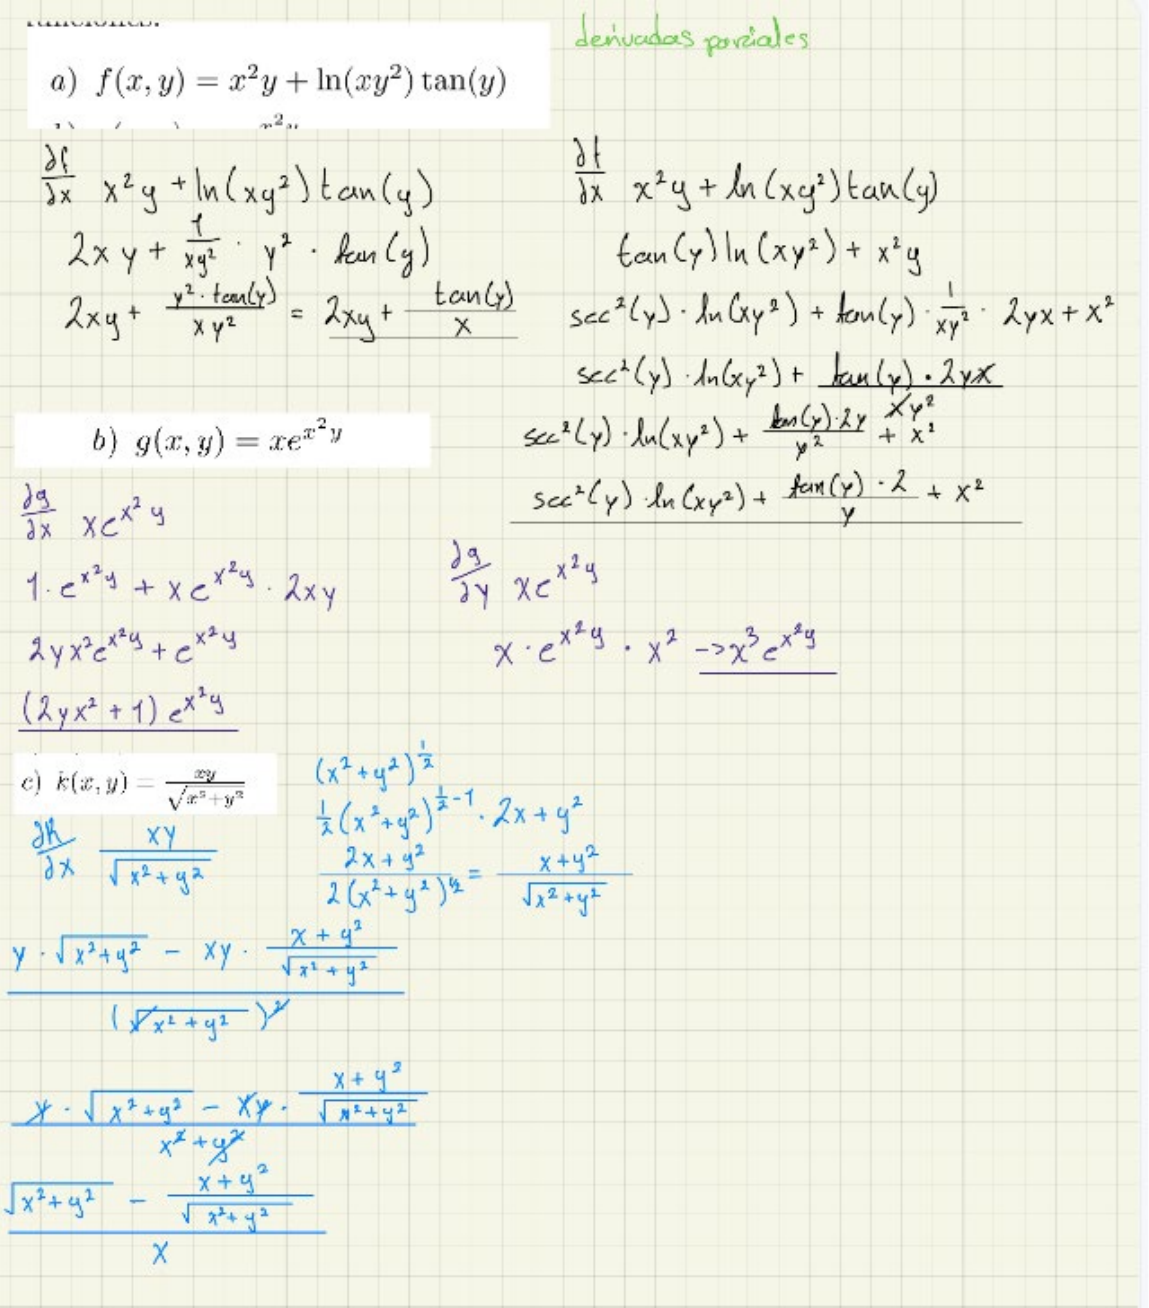 derivadas parciales
a) f(x, y) = x²y + ln(xy²) tan(y)
∂f/∂x x²y + ln(xy²) tan(y)
2xy + 1/xy² · y² · tan(y)
2xy + y²·tan(y)/xy² = 2xy + tan(y)/x
∂f/∂x x²y + ln(xy²) tan(y)
tan(y) ln(xy²) + x²y
sec²(y) · ln(xy²) + tan(y) · 1/xy² · 2yx + x²
sec²(y) · ln(xy²) + tan(y) · 2yx / xy²
sec²(y) · ln(xy²) + tan(y)·2y / y² + x²
sec²(y) · ln(xy²) + tan(y) · 2 / y + x²
b) g(x, y) = xe^(x²y)
∂g/∂x xe^(x²y)
1 · e^(x²y) + xe^(x²y) · 2xy
2yx²e^(x²y) + e^(x²y)
(2yx² + 1) e^(x²y)
∂g/∂y xe^(x²y)
x · e^(x²y) · x² -> x³e^(x²y)
c) k(x, y) = xy/√(x²+y²)
∂k/∂x xy/√(x²+y²)
(x²+y²)^(1/2)
1/2 (x²+y²)^(1/2-1) · 2x + y²
2x + y² / 2(x²+y²)^(1/2) = x+y² / √(x²+y²)
y · √(x²+y²) - xy · x+y² / √(x²+y²)
(√(x²+y²))²
y · √(x²+y²) - xy · x+y² / √(x²+y²)
x² + y²
√(x²+y²) - x+y² / √(x²+y²)
x